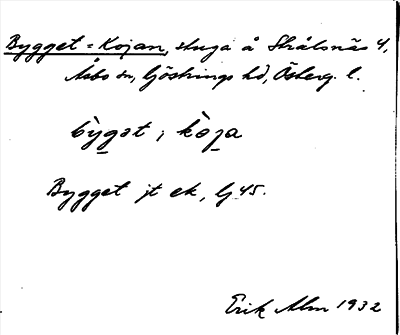 Bygget-Kojan, stuga å Strålsnäs 4,
Åsbo sn, Göstrings hd, Österg. l.
b̀ygət, kòja
Bygget jt ek, lj 45.
Erik Alm 1932